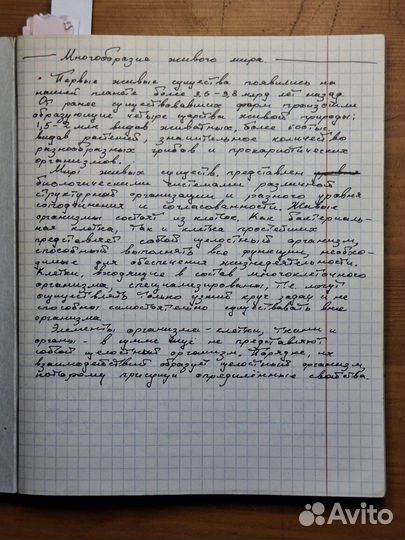 Многообразие живого мира.
• Первые живые существа появились на
нашей планете более 3,6-3,8 млрд лет назад.
От ранее существовавших форм произошли
образующие четыре царства живой природы:
1,5-2 млн видов животных, более 500 тыс.
видов растений, значительное количество
разнообразных грибов и прокариотических
организмов.
Мир живых существ, представлен
биологическими системами различной
структурной организации и разного уровня
соподчинения и согласованности. Живые
организмы состоят из клеток. Как бактериаль-
ная клетка, так и клетка простейших
представляет собой целостный организм,
способный выполнять все функции, необхо-
димые для обеспечения жизнедеятельности.
Клетки, входящие в состав многоклеточного
организма, специализированы, т.е. могут
осуществлять только узкий круг задач и не
способны самостоятельно существовать вне
организма.
Элементы организма - клетки, ткани и
органы - в сумме ещё не представляют
собой целостный организм. Порядке, их
взаимодействий образует целостный организм,
которому присущи определённые свойства.
Avito